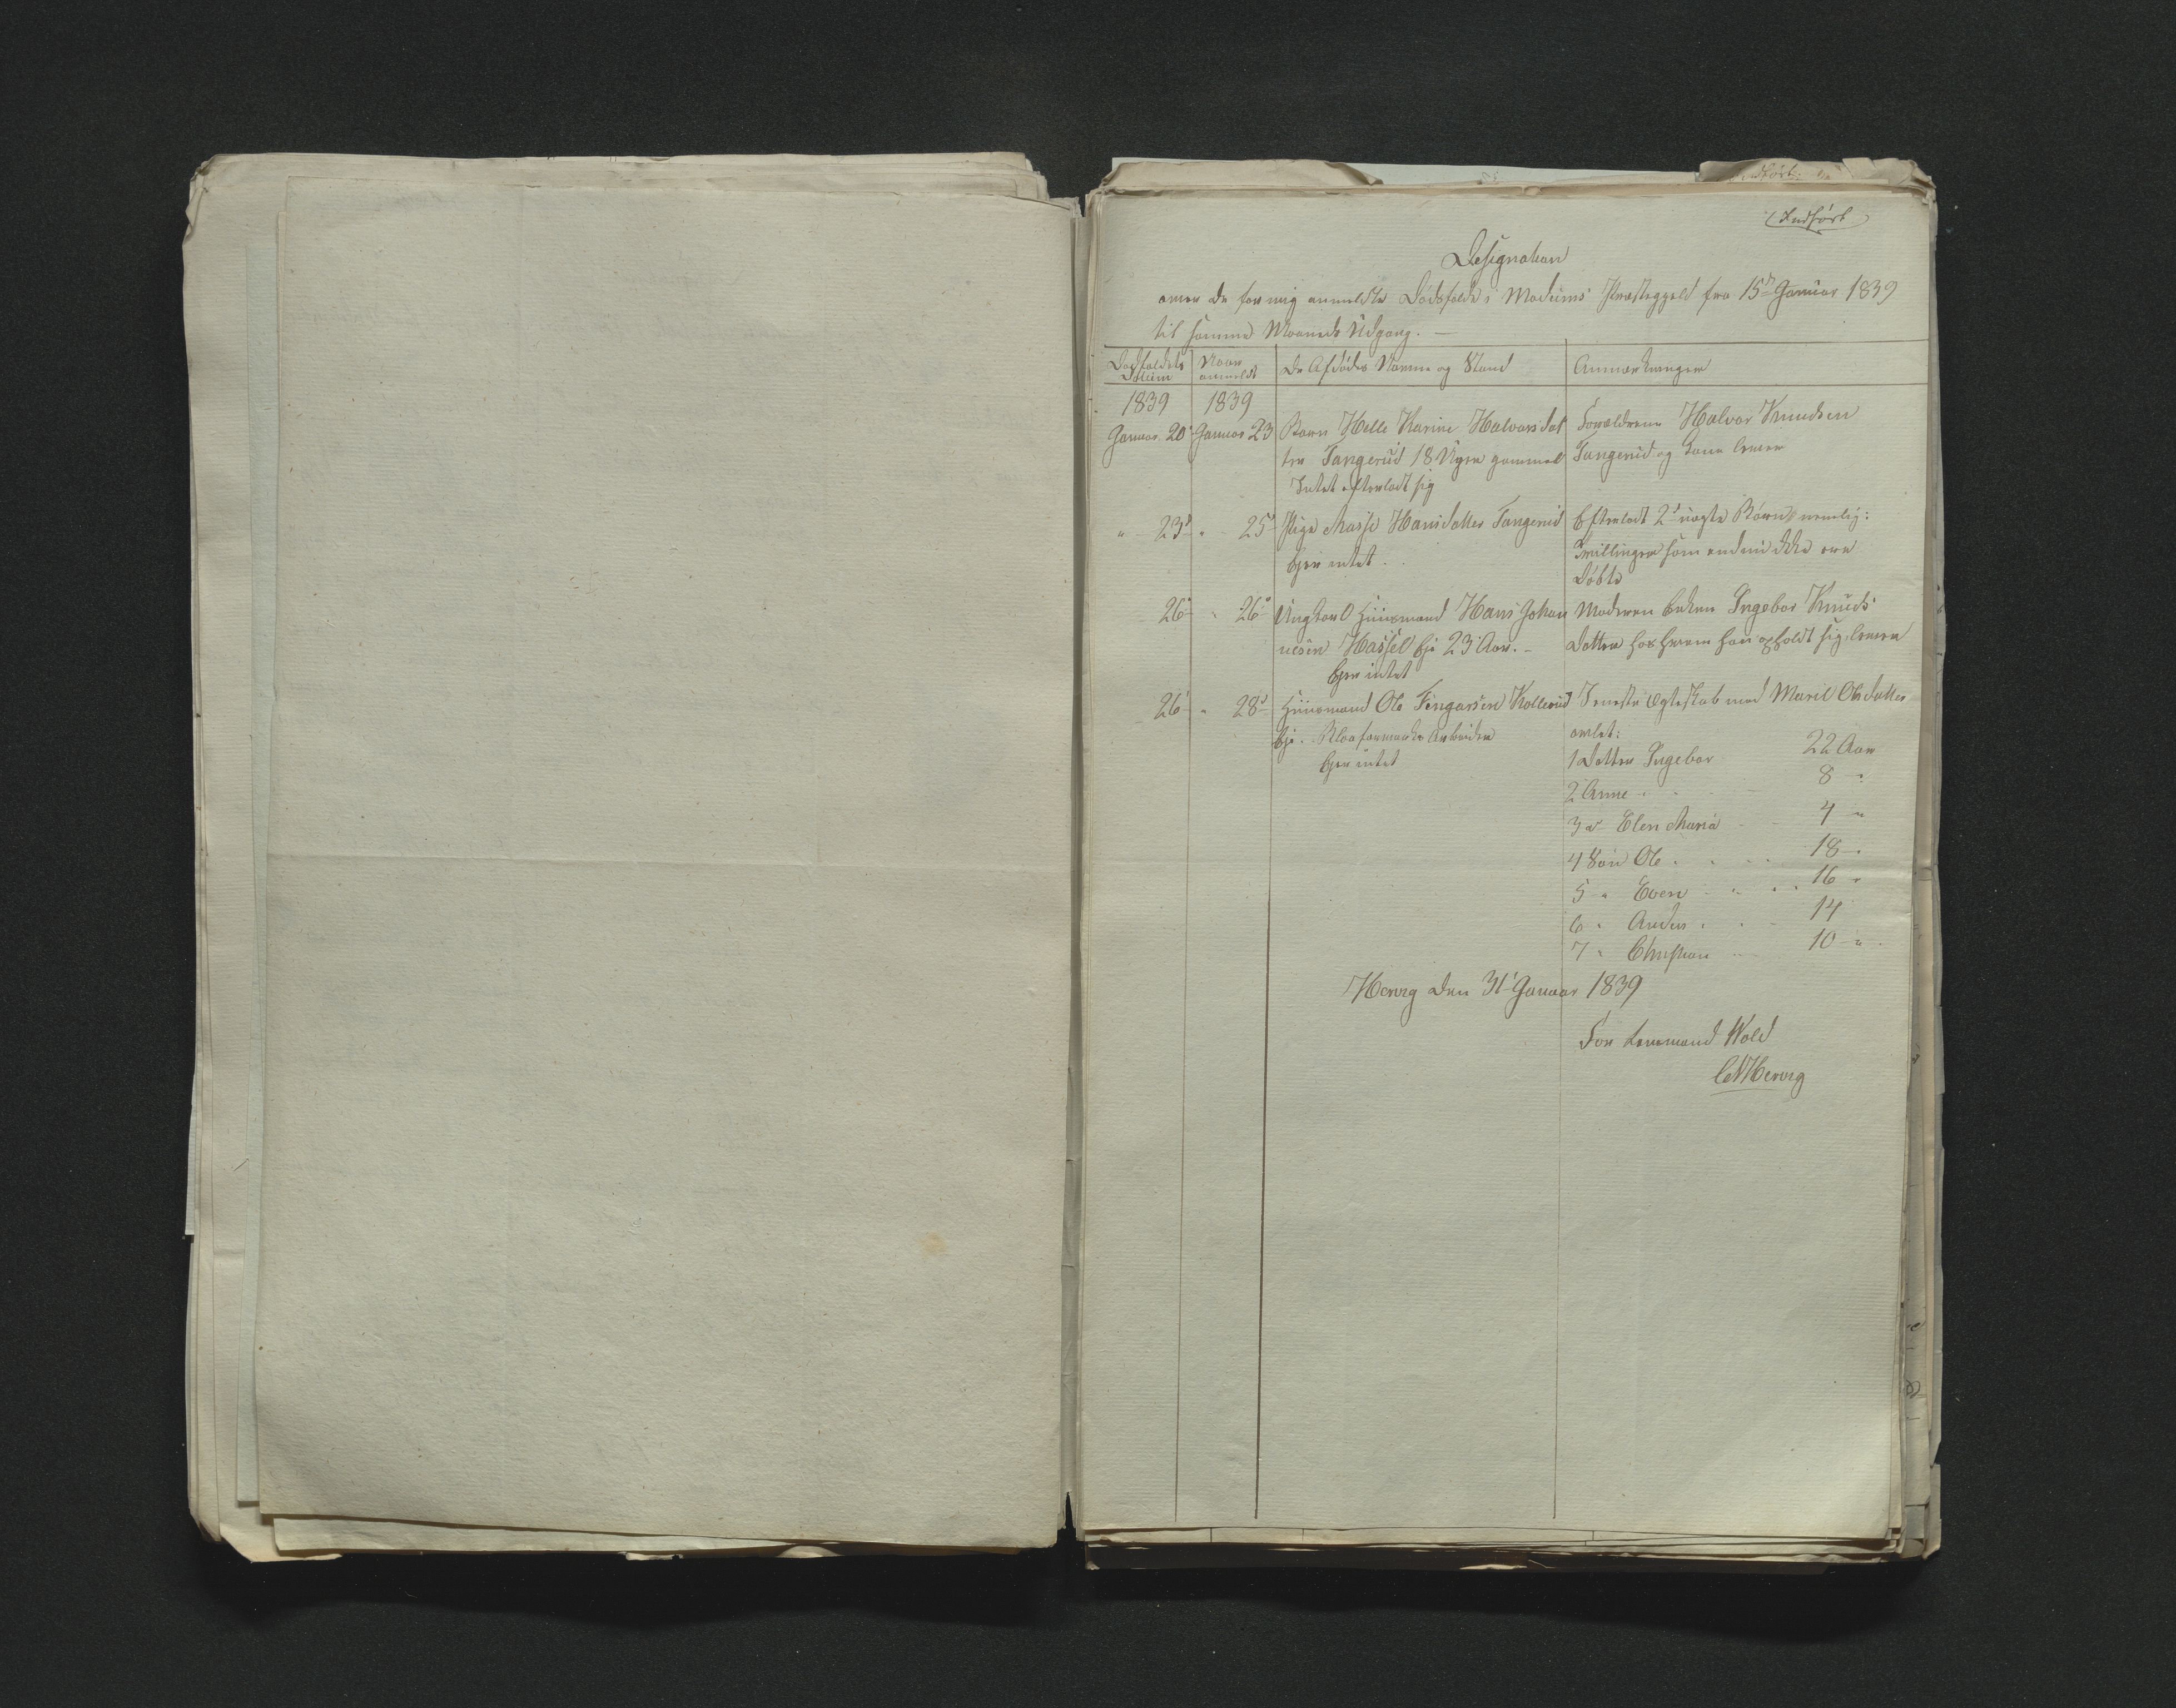 Indført
Designation
over de for mig anmeldte Dødsfald i Modums Præstegjeld fra 15de Januar 1839
til samme Maaneds Udgang. —
Dødsfaldets Datum
Naar anmeldt
De Afdødes Navne og Stand
Anmærkninger
1839 1839
Januar 20 Januar 23 Barn Helle Karine Halvorsdat
ter Tangerud 18 Uger gammel
Intet efterladt sig
Forældrene Halvor Knudsen
Tangerud og Kone lever
" 23d " 25d Pige Hansdatter Tangerud
Ejer intet.
Efterladt 2de uægte Børn nemlig:
Tvillinger som endnu ikke ere
Døbte
26d " 26d Ungkarl Huusmand Hans Johan
nesen Hassel Eje 23 Aar. -
Ejer intet
Moderen Enken Ingebor Knuds
datter hos hvem han opholdt sig lever
26 " 28d Huusmand Ole Kollerud
Eje. Blaafarveværks Arbeider
Ejer intet
Seneste Ægteskab med Marit Olsdatter
avlet:
1 Datter Ingebor 22 Aar
2 Anne 8 "
3 d Elen Maria 4 "
4 Søn Ole 18 "
5 " Even 16 "
6 " Anders 14
7 " Christian 10 "
den 31 Januar 1839
For Lensmand Wold